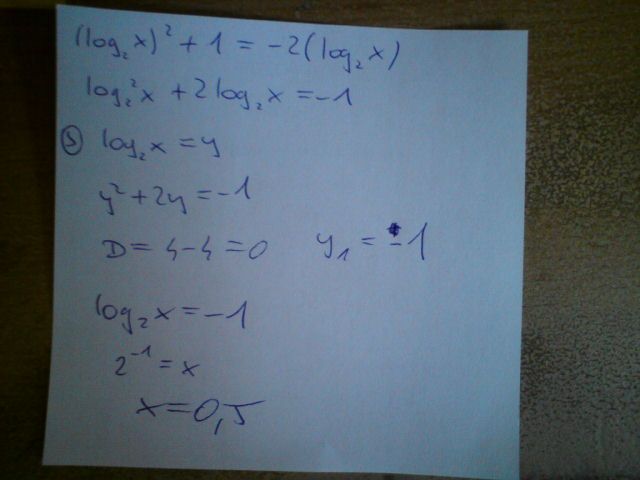 (log₂x)² + 1 = -2(log₂x)
log₂²x + 2log₂x = -1
Ⓢ log₂x = y
y² + 2y = -1
D = 4 - 4 = 0 y₁ = -1
log₂x = -1
2⁻¹ = x
x = 0,5